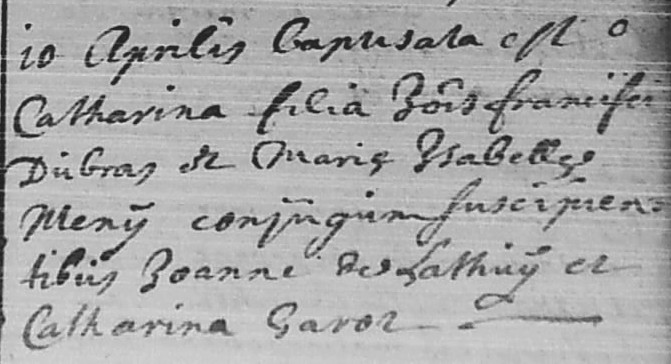 10 Aprilis baptisata est
Catharina filia Jõis francisci
Dubras et Marię Ysabellę
Menÿ conjugum suscipien=
tibus Joanne de Lathuÿ et
Catharina Garot